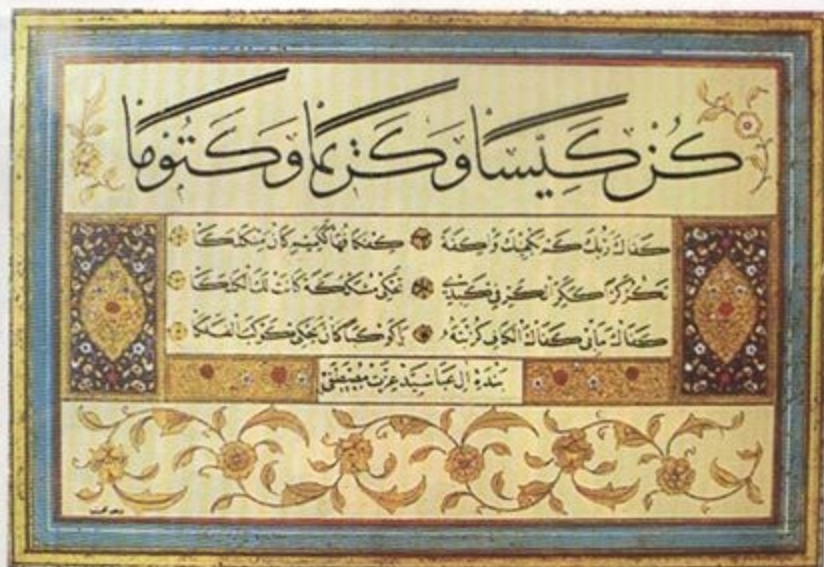 كُنْ كَيِّسًا وَكَرِيمًا وَكَتُومًا
كَفَاكَ رَبُّكَ كَمْ يَكْفِيكَ وَاكِفَةً كِفْكَافُهَا كَكَمِينٍ كَانَ مِنْ كَلَكَا
تَكُرُّ كَرًّا كَكَرِّ الْكَرِّ فِي كَبَدِي تَحْكِي مُشَكْشَكَةً كَانَتْ لَكَ
كَفَاكَ مَا بِي كَفَاكَ الْكَافِ كُرْبَتَهُ يَا كَوْكَبًا كَانَ يَحْكِي كَوْكَبَ الْفَلَكَا
بنده آل عبا سيد عزت مصطفى